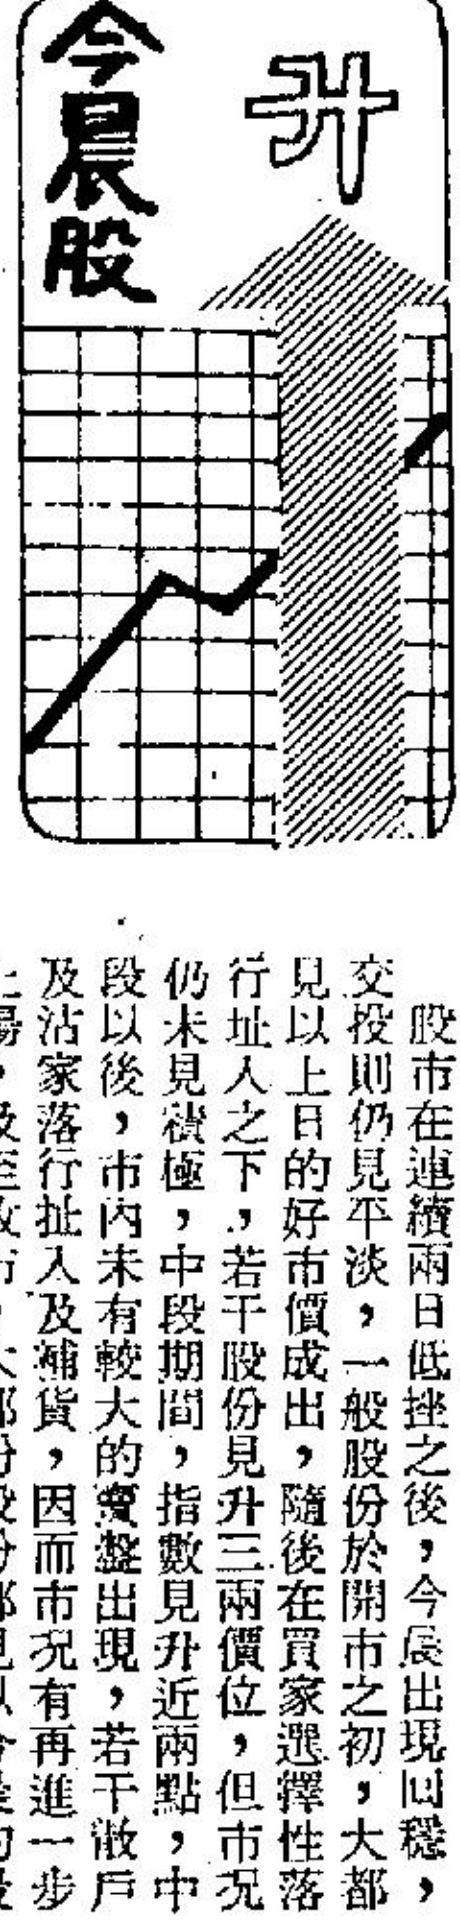 今晨股
升
股市在連續兩日低挫之後，今晨出現回穩，
交投則仍見平淡，一般股份於開市之初，大都
見以上日的好市價成出，隨後在買家選擇性落
行扯入之下，若干股份見升三兩價位，但市況
仍未見積極，中段期間，指數見升近兩點，中
段以後，市內未有較大的賣盤出現，若干散戶
及沽家落行扯入及補貨，因而市況有再進一步